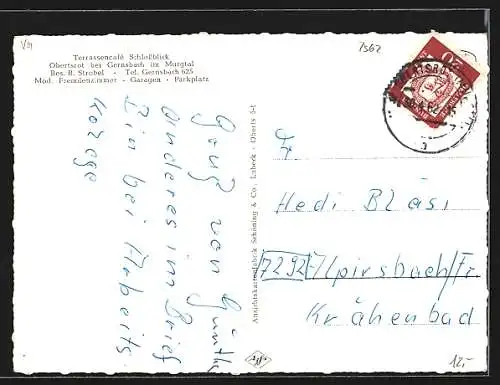 V/II
7562
Terrassencafé Schloßblick
Obertsrot bei Gernsbach im Murgtal
Bes. B. Strobel - Tel. Gernsbach 625
Mod. Fremdenzimmer - Garagen - Parkplatz
Ganz von
anderes im Brief
Bin bei Arbeits
kollege
Günth
Ansichtskartenfabrik Schöning & Co., Lübeck - Oberts 5-t
20
Fr.
Hedi Bläsi
7292 Alpirsbach/Fr
Krähenbad
12,-